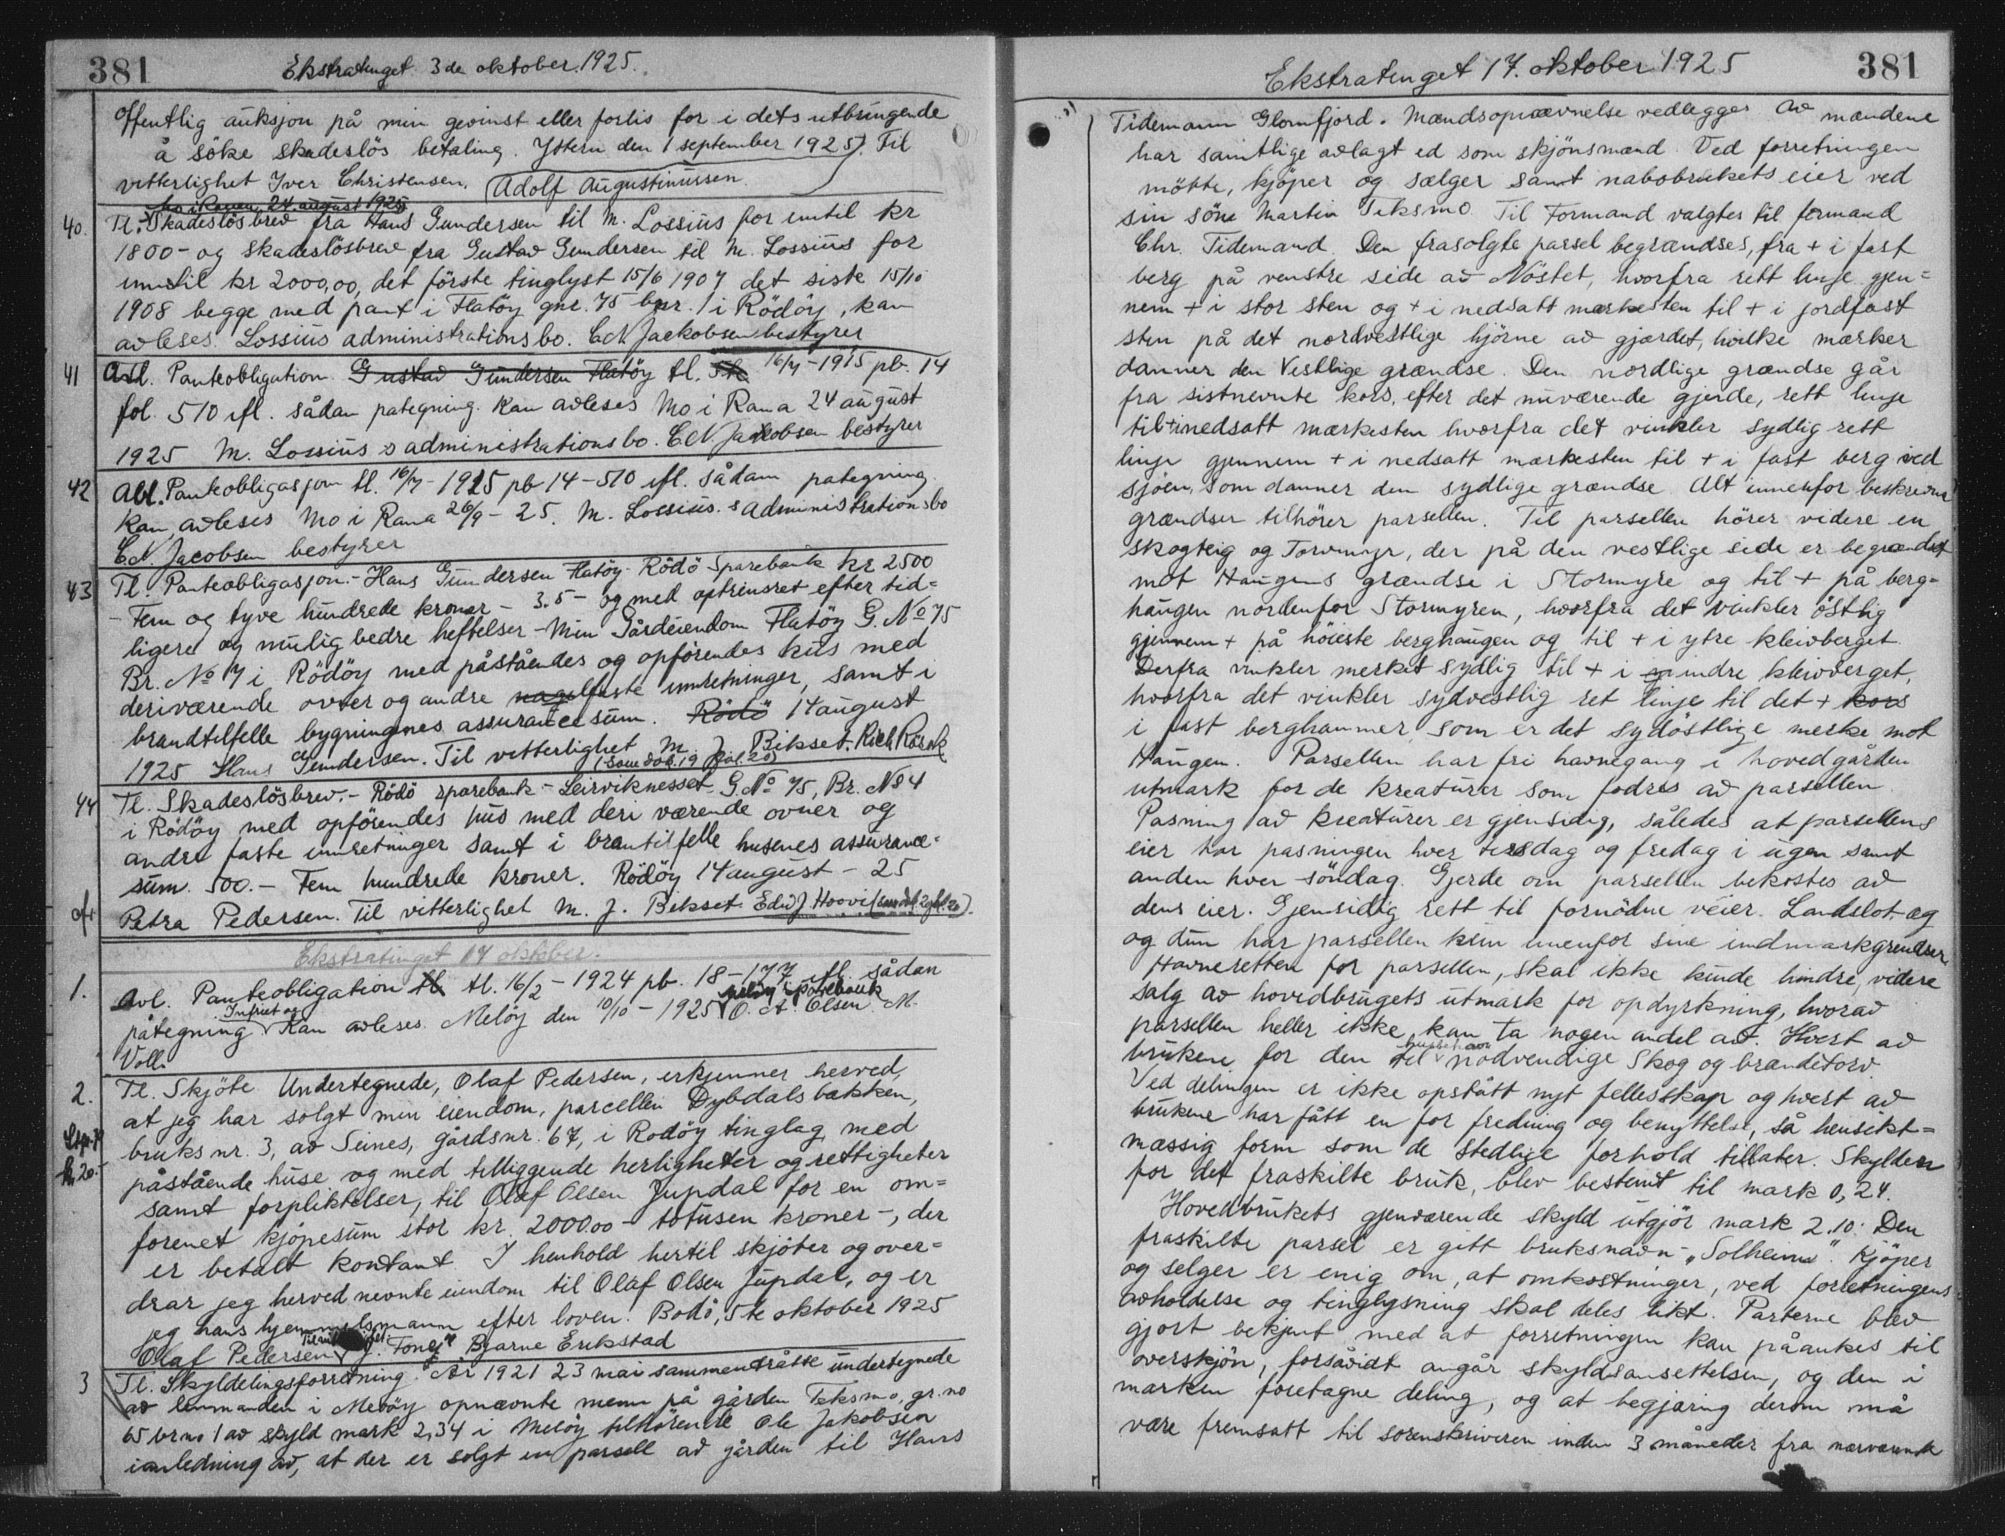 381
Ekstratinget 3de oktober 1925.
offentlig auksjon på min gevinst eller forlis for i dets utbringende
å söke skadeslös betaling. Yttern den 1 september 1925. Til
vitterlighet Iver Christensen. Adolf Augustinussen.
Mo i Rana 24 august 1925
40. Tl. Skadeslösbrev fra Hans Gundersen til M. Lossius for inntil kr
1800- og skadeslösbrev fra Gustav Gundersen til M. Lossius for
inntil kr 2000,00, det förste tinglyst 15/6 1907 det siste 15/10
1908 begge med pant i Flatöy gnr. 75 bnr. 1 i Rödöy, kan
avleses. Lossius administrationsbo. E.N. Jackobsen bestyrer
41 Avl. Panteobligation Gustav Gundersen Flatöy tl. 16/7-1915 pb. 14
fol. 510 ifl. sådan pategning. Kan avleses Mo i Rana 24 august
1925 M. Lossius s administrationsbo. E.N. Jakobsen bestyrer
42 Avl. Panteobligasjon tl. 16/7-1915 pb 14-510 ifl. sådan pategning.
Kan avleses Mo i Rana 26/9-25. M. Lossius. s Administrationsbo
E.N. Jacobsen bestyrer
43 Tl. Panteobligasjon.- Hans Gundersen Flatöy- Rödö Sparebank kr 2500
- Fem og tyve hundrede kroner - 3.5- og med optrinsret efter tid=
ligere og mulig bedre heftelser - Min Gårdeiendom Flatöy G. No 75
Br. No 7 i Rödöy med påståendes og opförendes hus med
deriværende ovner og andre nagelfaste innretninger, samt i
brandtilfelle bygningenes assurancesum. Rödö 14 august
1925 Hans Gundersen. Til vitterlighet M. J. Bikset.
(Som dok. 19 fol. 20)
44 Tl. Skadeslösbrev.- Rödö sparebank - Leirviknesset G. No 75, Br. No 4
i Rödöy med opförendes hus med deri værende ovner og
andre faste innretninger samt i brantilfelle husenes assurance=
sum. 500.- Fem hundrede kroner. Rödöy 14 august - 25
Petra Pedersen. Til vitterlighet M. J. Bikset
Ekstratinget 17 oktober.
1. Avl. Panteobligation tl. 16/2-1924 pb. 18-177 ifl. sådan
Infriet og Meløy sparebank
påtegning Kan avleses. Meløy den 10/10-1925 O. A. Olsen M.
Voll.
2. Tl. Skjöte Undertegnede, Olaf Pedersen, erkjenner herved,
at jeg har solgt min eiendom, parcellen Dybdalsbakken,
bruks nr. 3, av Seines, gårdsnr. 67, i Rodöy tinglag med
kr 20.-
påstående huse og med tilliggende herligheter og rettigheter
samt forpliktelser, til Olaf Olsen Jupdal for en om=
forenet kjöpesum stor kr. 2000oo - totusen kroner -, der
er betalt kontant. I henhold hertil skjöter og over=
drar jeg herved nevnte eiendom til Olaf Olsen Jupdal, og er
jeg hans hjemmelsmann efter loven. Bodö, 5te oktober 1925
Olaf Pedersen Bjarne Erikstad
3 Tl. Skyldelingsforretning. År 1921 23 mai sammentråtte undertegnede
av lensmanden i Meløy opnævnte menn på gården Teksmo, gr. no
65 br no 1 av skyld mark 2,34 i Meløy tilhörende Ole Jakobsen
i anledning av, at der er solgt en parsell av gården til Hans
381
Ekstratinget 17. oktober 1925
Tidemann Glomfjord. Mændsopnævnelse vedlegges Av mændene
har samtlige avlagt ed som skjönsmænd. Ved forretningen
mötte, kjöper og sælger samt nabobrukets eier ved
sin söne Martin Teksmo. Til Formand valgtes til formand
Chr. Tidemand. Den frasolgte parsel begrændses, fra + i fast
berg på venstre side av Nöstet, hvorfra rett linje gjen=
nem + i stor sten og + i nedsatt merkesten til + i jordfast
sten på det nordvestlige hjörne av gjærdet, hvilke mærker
danner den Vestlige grændse. Den nordlige grændse går
fra sistnevnte kors, efter det nuværende gjerde, rett linje
til + i nedsatt mærkesten hvorfra det vinkler sydlig rett
linje gjennem + i nedsatt mærkesten til + i fast berg ved
sjöen, som danner den sydlige grændse. Alt innenfor beskrevne
grændser tilhörer parsellen. Til parsellen hörer videre en
skogteig og Torvmyr, der på den vestlige side er begrændset
mot Haugens grændse i Stormyre og til + på berg=
haugen nordenfor Stormyren, hvorfra det vinkler östlig
gjennem + på höieste berghaugen og til + i ytre kleivberget
Derfra vinkler merket sydlig til + i indre kleivberget,
hvorfra det vinkler sydvestlig ret linje til det + kors
i fast berghammer, som er det sydöstlige merke mot
Haugen. Parsellen har fri havnegang i hovedgården
utmark for de kreaturer som fodres av parsellen.
Pasning av kreaturer er gjensidig, således at parsellens
eier har pasningen hver tirsdag og fredag i ugen samt
anden hver söndag. Gjerde om parsellen bekostes av
dens eier. Gjensidig rett til fornödne veier. Landslot, æg
og dun har parsellen kun innenfor sine indmarkgrendser.
Havneretten for parsellen, skal ikke kunde hindre, videre
salg av hovedbrugets utmark for opdyrkning, hvorav
parsellen heller ikke kan ta nogen andel av. Hvert av
brukene for den til nödvendige Skog og brændetorv.
Ved delingen er ikke opstått nyt fellesskap og hvert av
brukene har fått en for fredning og benyttelse, så hensikt=
mæssig form som de stedlige forhold tillater. Skylden
for det fraskilte bruk, blev bestemt til mark 0,24.
Hovedbrukets gjenværende skyld utgjör mark 2.10. Den
fraskilte parsel er gitt bruksnavn - "Solheim". Kjöper
og selger er enig om, at omkostninger, ved forretningens
avholdelse og tinglysning skal deles likt. Parterne blev
gjort bekjent med at forretningen kan påankes til
overskjön, forsåvidt angår skyldansettelsen, og den i
marken foretagne deling, og at begjæring derom må
være fremsatt til sorenskriveren inden 3 måneder fra nærværende